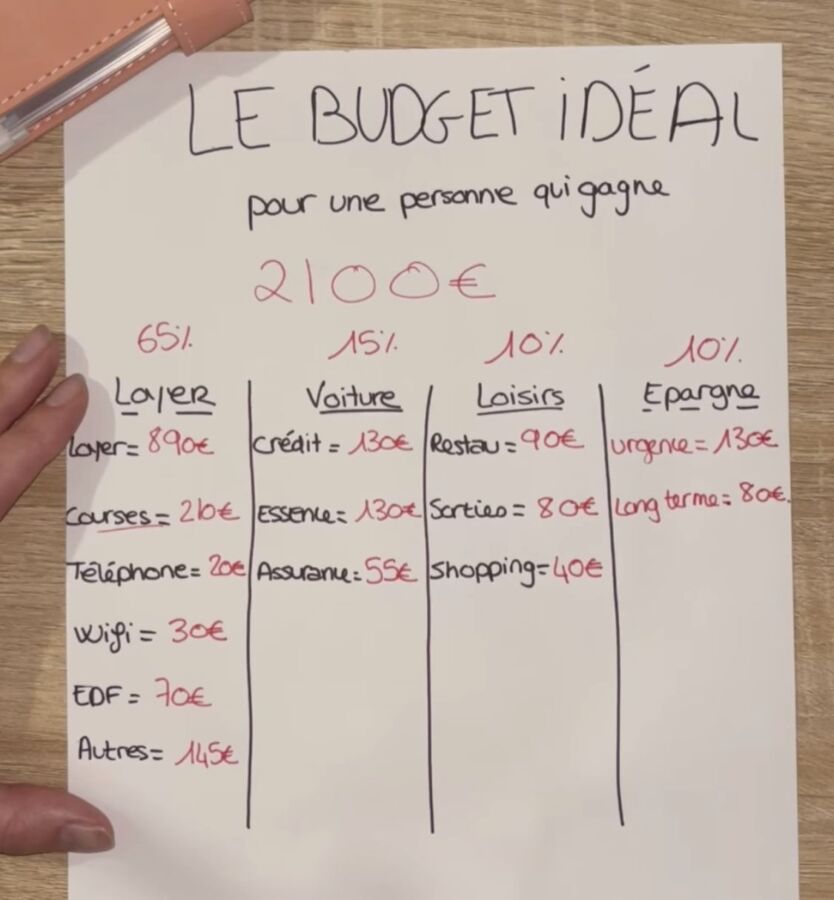 LE BUDGET IDÉAL
pour une personne qui gagne
2100€
65%
Loyer
Loyer= 890€
Courses= 210€
Téléphone= 20€
Wifi= 30€
EDF= 70€
Autres= 145€
15%
Voiture
Crédit= 130€
Essence= 130€
Assurance= 55€
10%
Loisirs
Restau= 90€
Sorties= 80€
Shopping= 40€
10%
Epargne
Urgence= 130€
Long terme= 80€.